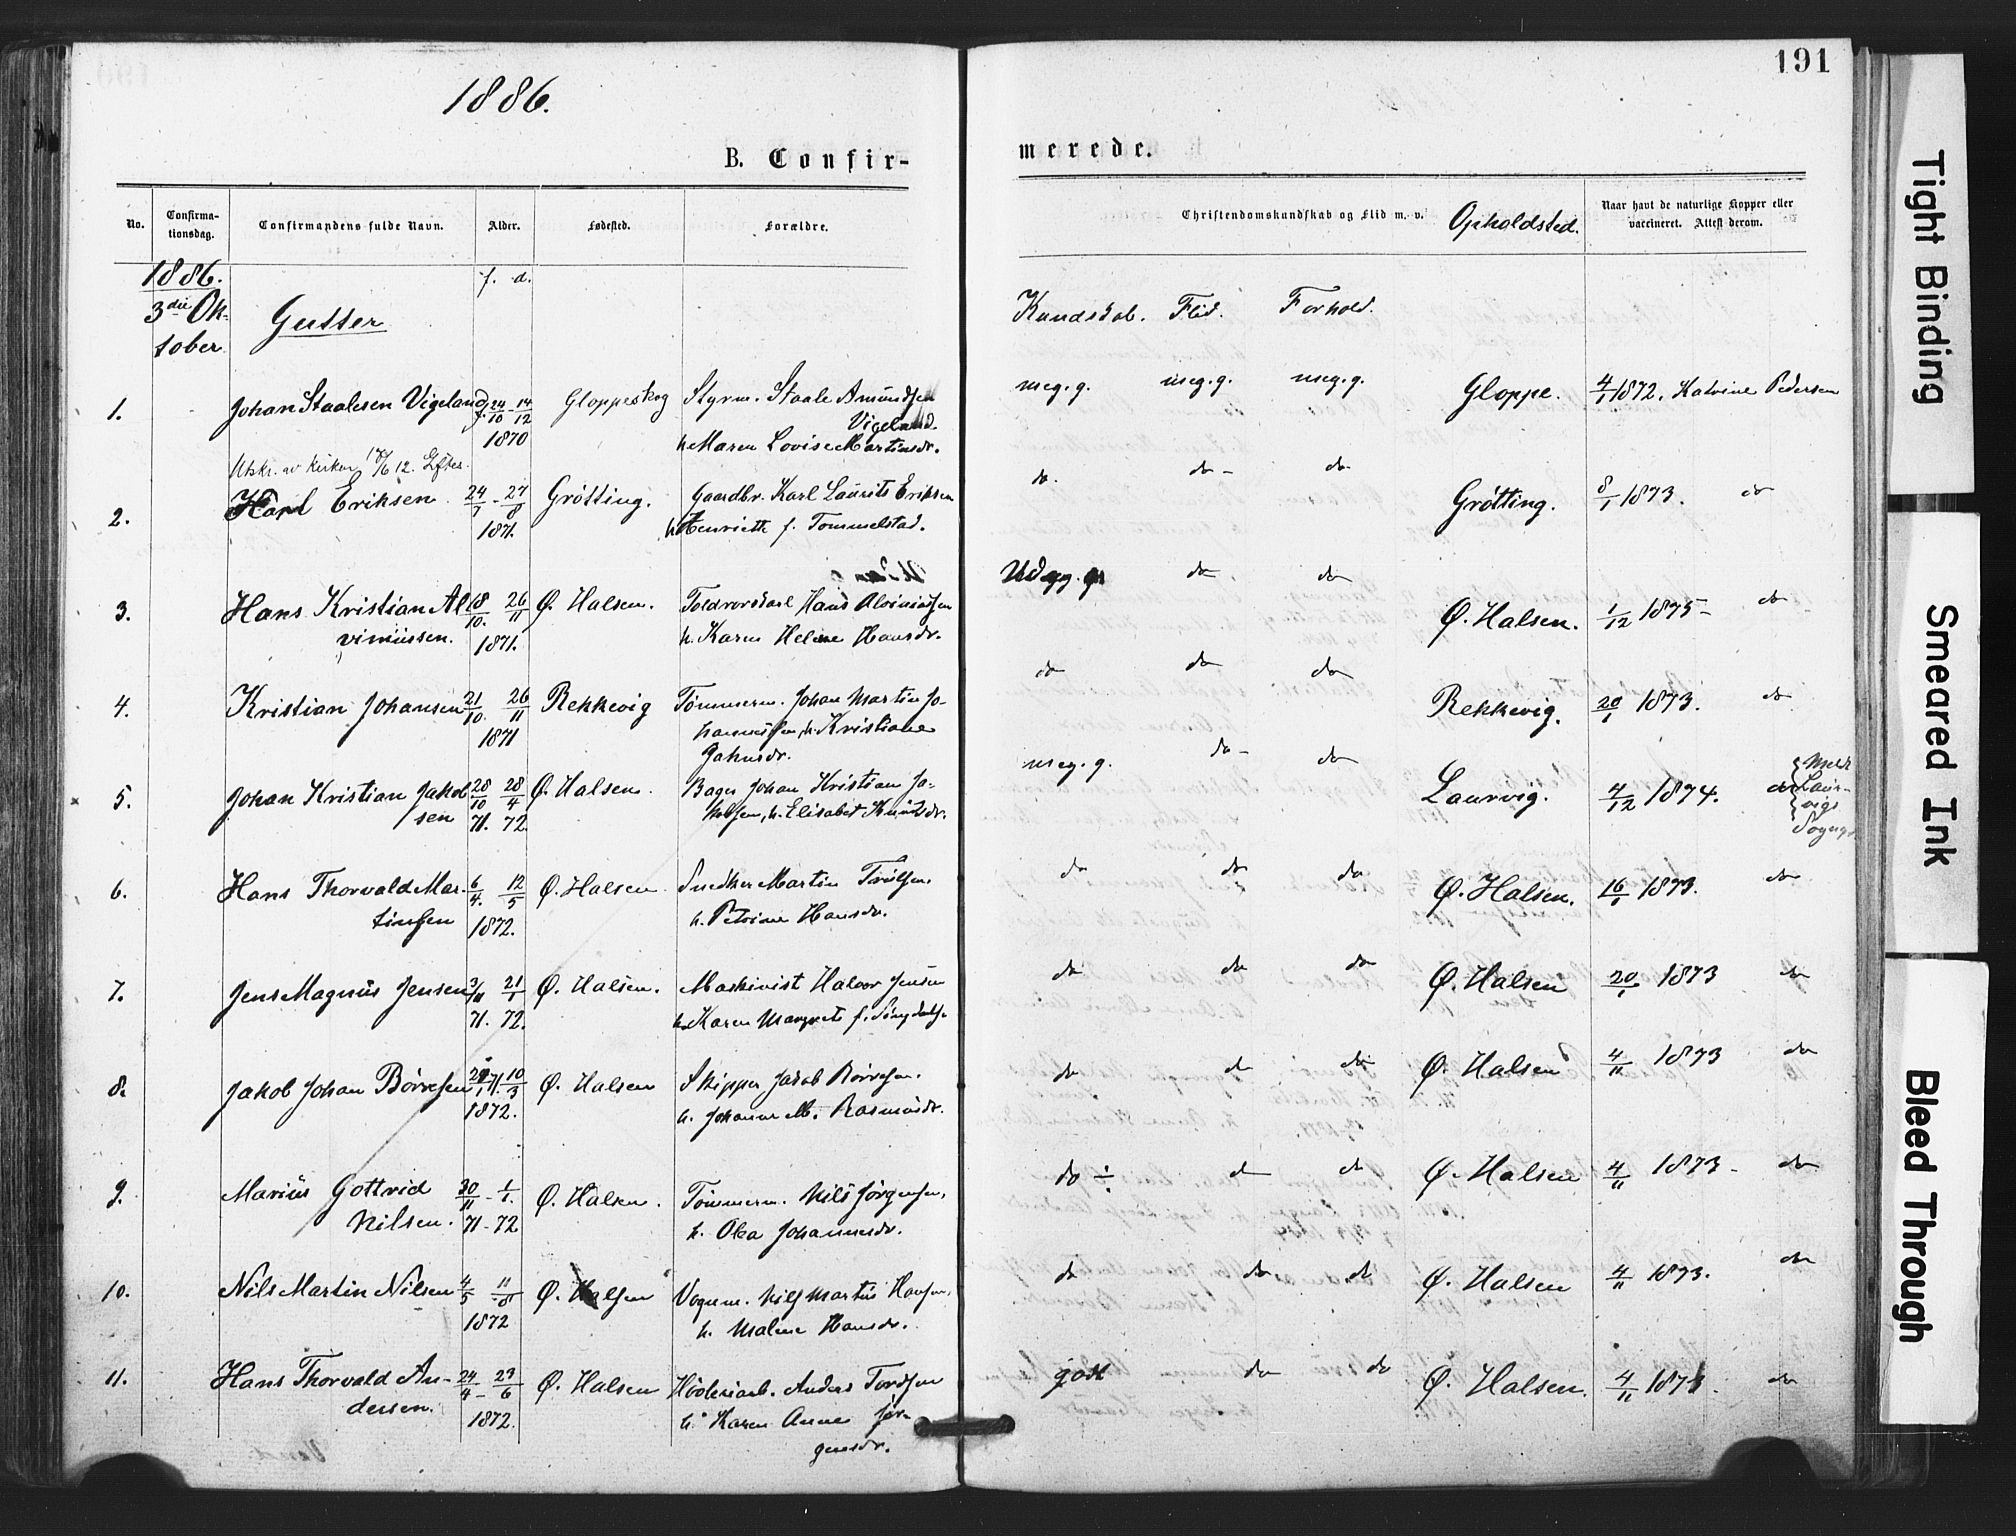 191
1886.
B. Confirmerede.
No.
Confirmationsdag.
Confirmandens fulde Navn.
Alder.
Fødested.
Forældre.
Christendomskundskab og Flid m. v.
Opholdsted.
Naar havt de naturlige Kopper eller vaccineret. Attest derom.
1886.
3die Oktober
Gutter
f. d.
Kundskab. Flid. Forhold.
1. Johan Staalesen Vigeland 24/10 - 14/12 1870 Gloppeskog Styrm. Staale Amundsen Vigeland h. Maren Lovise Martinsdr. meg. g. meg. g. meg. g. Gloppe. 4/1 1872. Katrine Pedersen
Utskr. av Kirken 12.
2. Karl Eriksen 24/7 - 27/8 1871. Grótting. Gaardbr. Karl Laurits Eriksen h. Henriette f. Tommelstad. do. do - do Grótting. 8/1 1873. do
3. Hans Kristian Alviniussen. 18/10. 26/11 1871. Ø. Halsen. Toldrorskarl Hans Alviniussen h. Karen Helene Hansdr. do do Ø. Halsen. 1/12 1875 - do
4. Kristian Johansen 21/10. 26/11 1871 Rekkevig Tømmerm. Johan Martin Johannessen, h. Kristiane Jahnsdr. do do do Rekkevig. 20/1 1873. do
5. Johan Kristian Jakobsen 28/10 28/4 71. 72. Ø. Halsen. Bager Johan Kristian Jakobsen, h. Elisabet Knutsdr. meg. g. do - do Laurvig. 4/12 1874. do
Laurvigs Sogn
6. Hans Thorvald Martinsen 6/4. 12/5 1872. Ø. Halsen. Snedker Martin Trulsen. h. Petrine Hansdr. do do do Ø. Halsen. 16/1 1873. do
7. Jens Magnus Jensen 3/11 21/1 71. 72. Ø. Halsen. Maskinist Halvor Jensen h. Karen Margrete f. do do do Ø. Halsen 20/1 1873 do
8. Jakob Johan Børresen 10/3 1872. Ø. Halsen Skipper Jakob Børresen. h. Johanne M. Rasmusdr. do do do Ø. Halsen 4/11 1873 do
9. Marius Gottrid Nilsen. 30/11 - 1/1. 71 - 72 Ø. Halsen. Tømmerm. Nils Jørgensen, h. Olea Johannesdr. do ÷ do do Ø. Halsen 4/11 1873 - do
10. Nils Martin Nilsen 4/5 11/8 1872 Ø. Halsen Vognm. Nils Martin Hansen, h. Malene Hansdr. do do do Ø. Halsen 4/11 1873. do
11. Hans Thorvald Andersen. 24/4 - 23/6 1872. Ø. Halsen Anders Tordsen h. Karen Anne Jørgensdr. godt do do Ø. Halsen. 4/11 1873. do
Tight Binding
Smeared Ink
Bleed Through